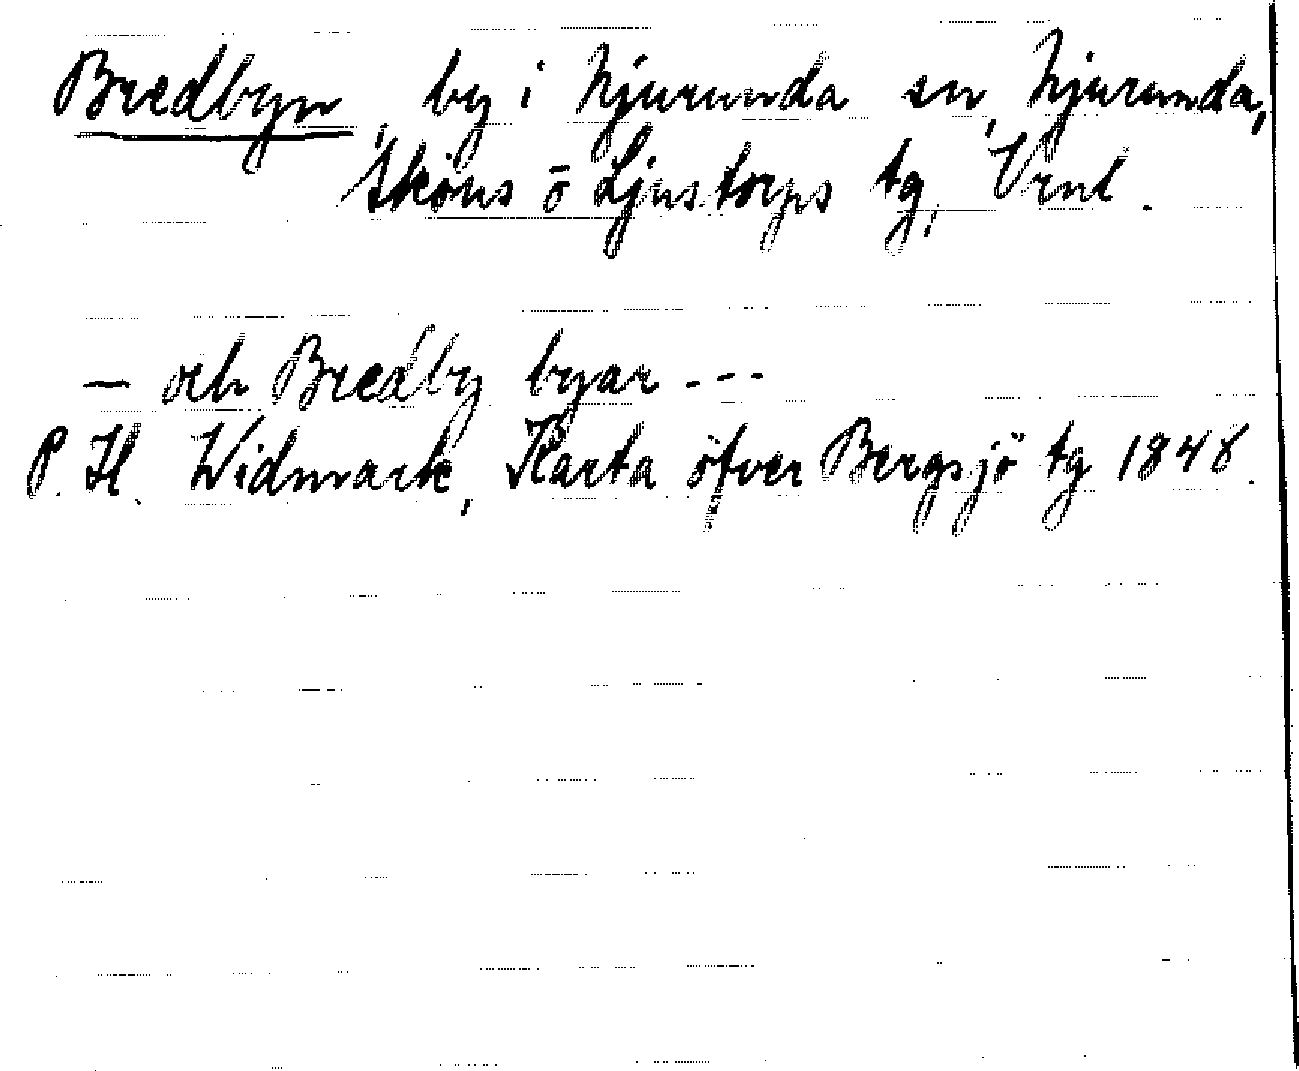 Bredbyn, by i Njurunda sn, Njurunda,
Sköns o Ljustorps tg, Vrnl.
— och Bredby byar ---
P. H. Widmark, Karta öfver Bergsjö tg 1848.